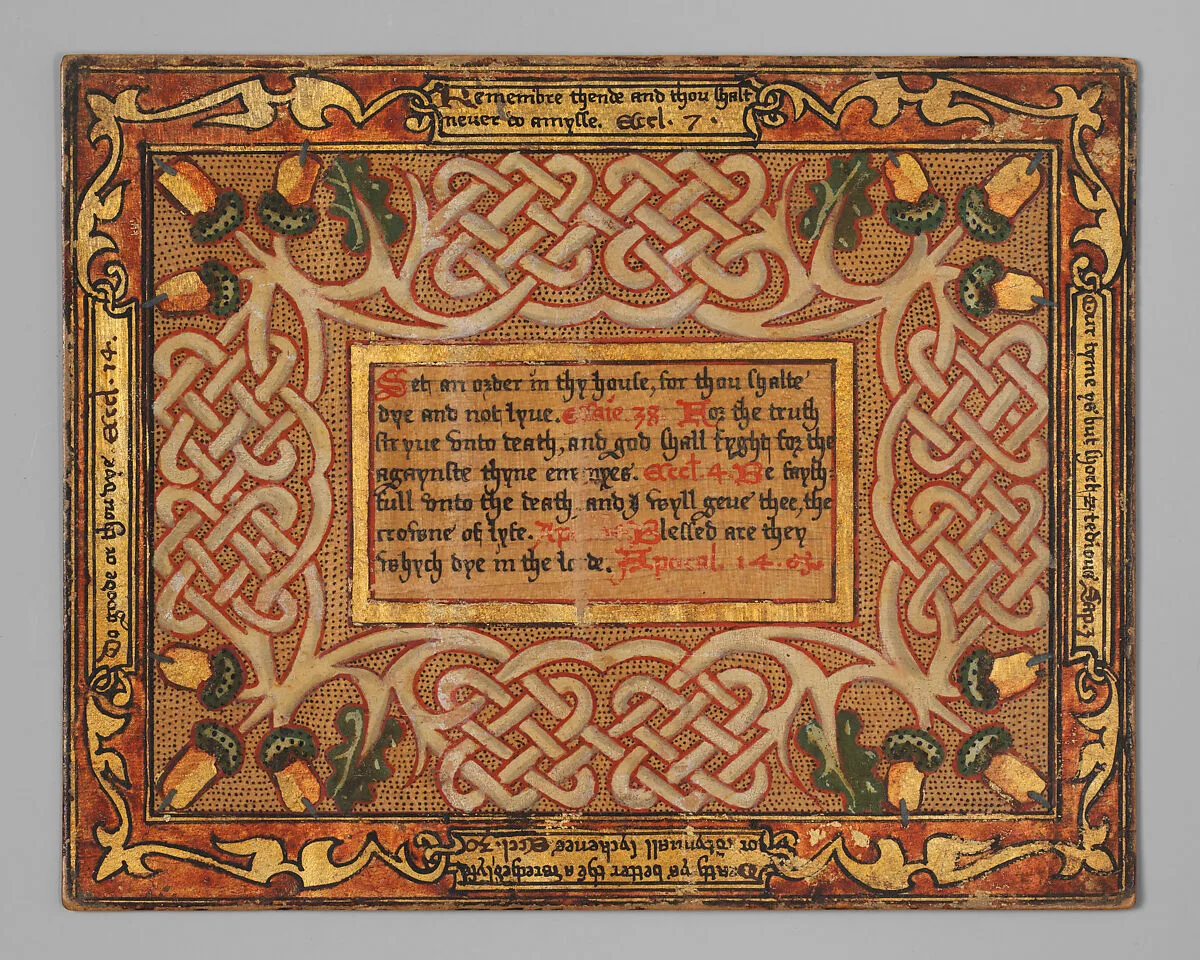 Remembre thende and thou shalt
never do amysse. Eccl. 7.
Seth an order in thy house, for thou shalte
dye and not lyue. Esaie 38. For the truth
stryue vnto death, and god shall fyght for the
agaynste thyne enemyes. Eccl. 4. Be fayth-
full vnto the death and I wyll geue thee, the
crowne of lyfe. Blessed are they
whych dye in the lorde. Apocal. 14.
Do goode or thou dye. Eccl. 14.
Our tyme ys but short & tedious. Sap.
Death ys better thē a wreched lyfe
or cōtynuall syckenes Eccl. 30.